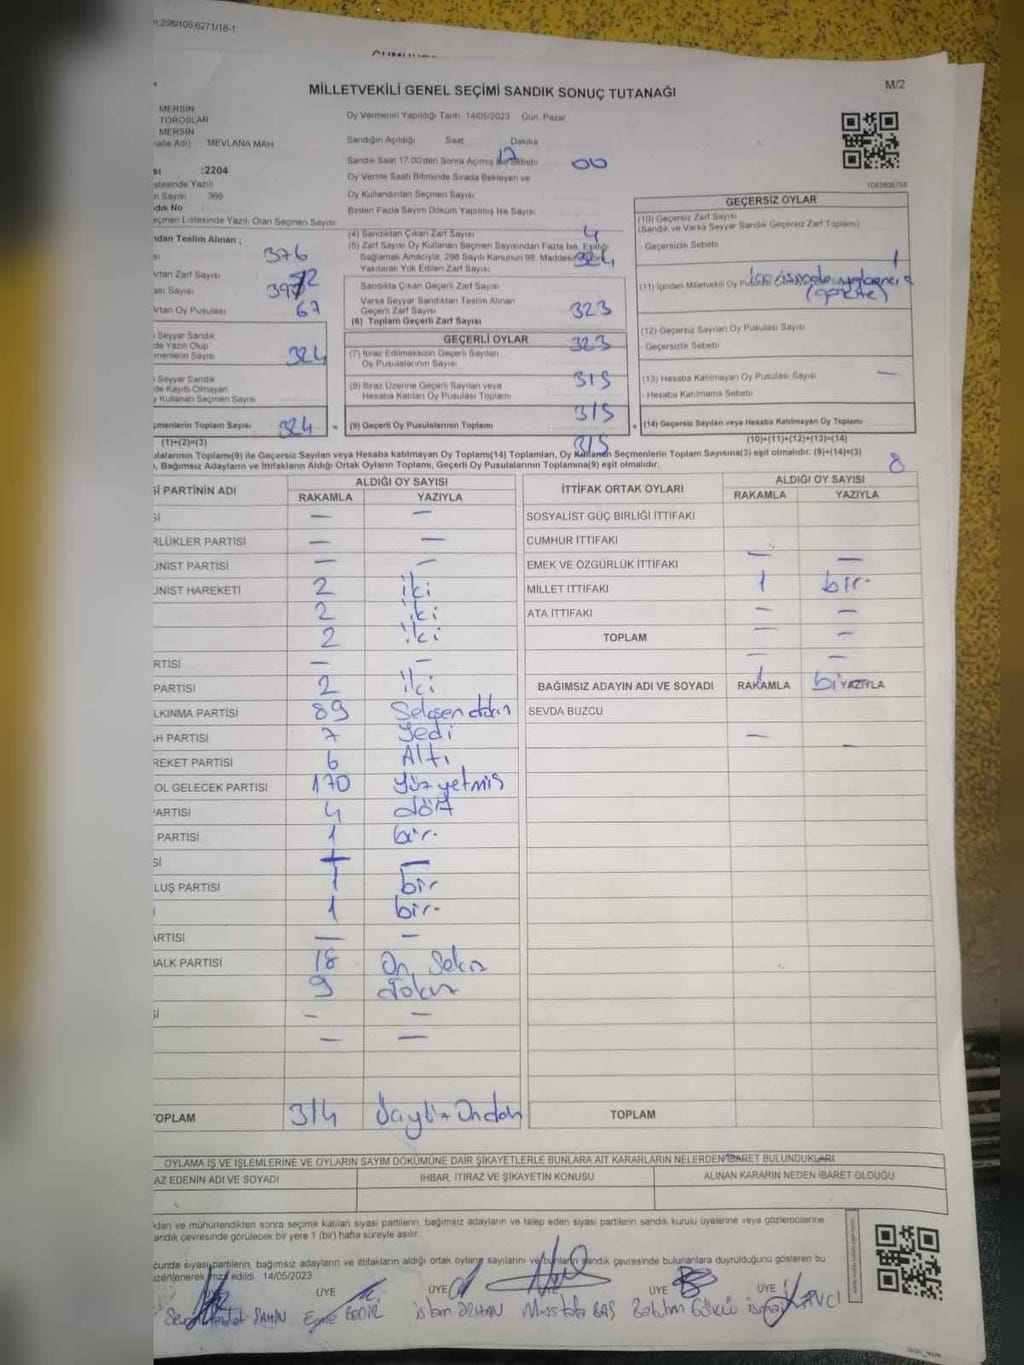 n:298/105:6271/18-1
MİLLETVEKİLİ GENEL SEÇİMİ SANDIK SONUÇ TUTANAĞI
M/2
MERSİN
TOROSLAR
MERSİN
MEVLANA MAH
Oy Vermenin Yapıldığı Tarih 14/05/2023 Gün Pazar
Sandığın Açıldığı Saat Dakika
Sandık Saat 17.00'den Sonra Açılmış İse Sebebi
17
00
:2204
Oy Verme Saati Bitiminde Sırada Bekleyen ve
Oy Kullandırılan Seçmen Sayısı
n Sayısı 366
Birden Fazla Sayım Döküm Yapılmış İse Sayısı
dık No
eçmen Listesinde Yazılı Olan Seçmen Sayısı
ndan Teslim Alınan ;
376
artan Zarf Sayısı
artan Oy Pusulası
67
Seyyar Sandık
de Yazılı Olup
menlerin Sayısı
324
Seyyar Sandık
de Kayıtlı Olmayan
y Kullanan Seçmen Sayısı
çmenlerin Toplam Sayısı
324
(1)+(2)=(3)
(4) Sandıktan Çıkan Zarf Sayısı
4
(5) Zarf Sayısı Oy Kullanan Seçmen Sayısından Fazla İse, Eşitliği
Sağlamak Amacıyla, 298 Sayılı Kanunun 98. Maddesi
324
Yakılarak Yok Edilen Zarf Sayısı
Sandıkta Çıkan Geçerli Zarf Sayısı
Varsa Seyyar Sandıktan Teslim Alınan
Geçerli Zarf Sayısı
323
(6) Toplam Geçerli Zarf Sayısı
GEÇERLİ OYLAR
323
(7) İtiraz Edilmeksizin Geçerli Sayılan
Oy Pusulalarının Sayısı
315
(8) İtiraz Üzerine Geçerli Sayılan veya
Hesaba Katılan Oy Pusulası Toplamı
315
(9) Geçerli Oy Pusulalarının Toplamı
315
GEÇERSİZ OYLAR
(10) Geçersiz Zarf Sayısı
(Sandık ve Varsa Seyyar Sandık Geçersiz Zarf Toplamı)
- Geçersizlik Sebebi
1
(12) Geçersiz Sayılan Oy Pusulası Sayısı
- Geçersizlik Sebebi
(13) Hesaba Katılmayan Oy Pusulası Sayısı
—
- Hesaba Katılmama Sebebi
(14) Geçersiz Sayılan veya Hesaba Katılmayan Oy Toplamı
(10)+(11)+(12)+(13)=(14)
8
ulalarının Toplamı(9) ile Geçersiz Sayılan veya Hesaba Katılmayan Oy Toplamı(14) Toplamları, Oy Kullanan Seçmenlerin Toplam Sayısına(3) eşit olmalıdır. (9)+(14)=(3)
, Bağımsız Adayların ve İttifakların Aldığı Ortak Oyların Toplamı, Geçerli Oy Pusulalarının Toplamına(9) eşit olmalıdır.
Sİ PARTİNİN ADI
ALDIĞI OY SAYISI
RAKAMLA YAZIYLA
Sİ — —
RLÜKLER PARTİSİ — —
ÜNİST PARTİSİ — —
ÜNİST HAREKETİ 2 iki
2 iki
2 iki
RTİSİ — —
PARTİSİ 2 iki
LKINMA PARTİSİ 89 Seksen dokuz
H PARTİSİ 7 Yedi
REKET PARTİSİ 6 Altı
OL GELECEK PARTİSİ 170 Yüz yetmiş
PARTİSİ 4 dört
PARTİSİ 1 bir
Sİ — —
LUŞ PARTİSİ 1 bir
1 bir
ARTİSİ — —
HALK PARTİSİ 18 On Sekiz
9 dokuz
Sİ — —
— —
TOPLAM 314 Üçyüz Ondört
İTTİFAK ORTAK OYLARI
ALDIĞI OY SAYISI
RAKAMLA YAZIYLA
SOSYALİST GÜÇ BİRLİĞİ İTTİFAKI
CUMHUR İTTİFAKI
EMEK VE ÖZGÜRLÜK İTTİFAKI — —
MİLLET İTTİFAKI 1 bir
ATA İTTİFAKI — —
TOPLAM — —
— —
BAĞIMSIZ ADAYIN ADI VE SOYADI RAKAMLA YAZIYLA
1 bir
SEVDA BUZCU
— —
TOPLAM
OYLAMA İŞ VE İŞLEMLERİNE VE OYLARIN SAYIM DÖKÜMÜNE DAİR ŞİKAYETLERLE BUNLARA AİT KARARLARIN NELERDEN İBARET BULUNDUKLARI
AZ EDENİN ADI VE SOYADI
İHBAR, İTİRAZ VE ŞİKAYETİN KONUSU
ALINAN KARARIN NEDEN İBARET OLDUĞU
dan ve mühürlendikten sonra seçime katılan siyasi partilerin, bağımsız adayların ve talep eden siyasi partilerin sandık kurulu üyelerine veya gözlemcilerine
andık çevresinde görülecek bir yere 1 (bir) hafta süreyle asılır.
cunda siyasi partilerin, bağımsız adayların ve ittifakların aldığı ortak oyların sayılarını ve bunların sandık çevresinde bulunanlara duyrulduğunu gösteren bu
edildi. 14/05/2023
ÜYE ÜYE ÜYE ÜYE
ŞAHİN Emre BEDİR Mustafa BAŞ